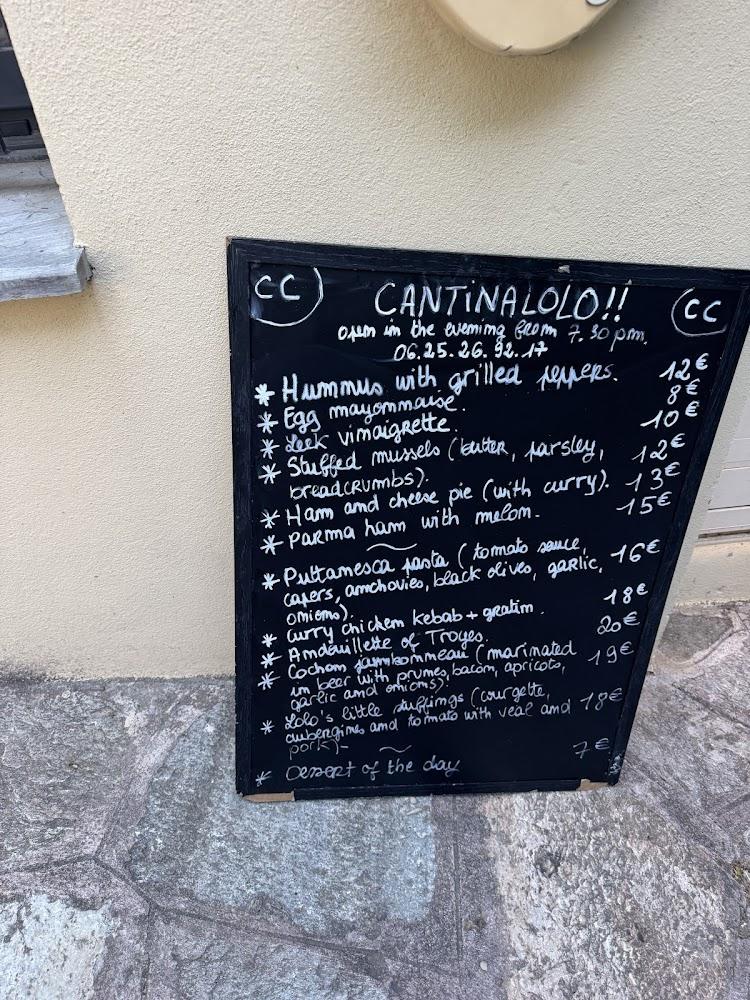 CC CANTINALOLO!! CC
open in the evening from 7.30 pm.
06.25.26.92.17
* Hummus with grilled peppers. 12€
* Egg mayonnaise. 8€
* Leek vinaigrette. 10€
* Stuffed mussels (butter, parsley, 12€
breadcrumbs).
* Ham and cheese pie (with curry). 13€
* Parma ham with melon. 15€
~
* Puttanesca pasta (tomato sauce, 16€
capers, anchovies, black olives, garlic,
onions).
* Curry chicken kebab + gratin. 18€
* Andouillette of Troyes. 20€
* Cochon jambonneau (marinated 19€
in beer with prunes, bacon, apricots,
garlic and onions).
* Lolo's little stuffings (courgette, 18€
aubergines and tomato with veal and
pork)-
~
* Dessert of the day 7€